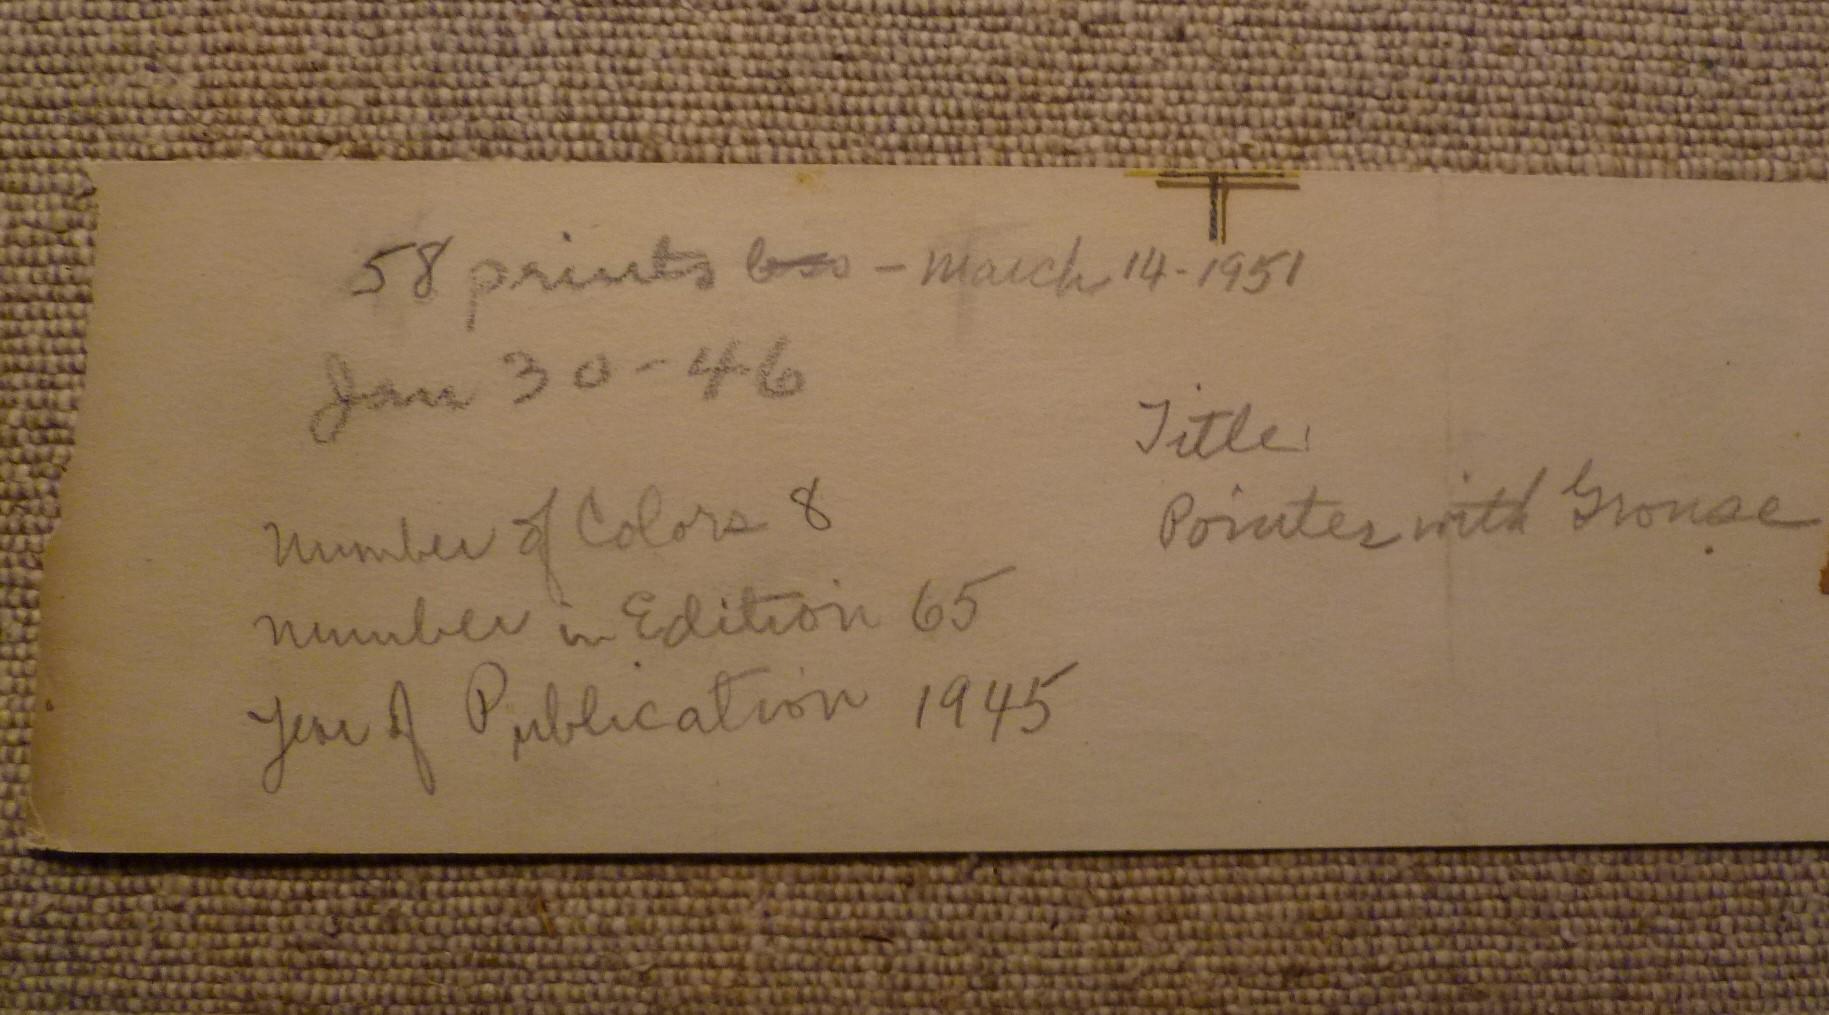 58 prints - March 14-1951
Jan 30-46
Number of Colors 8
Number in Edition 65
Year of Publication 1945
Title:
Pointer with Grouse